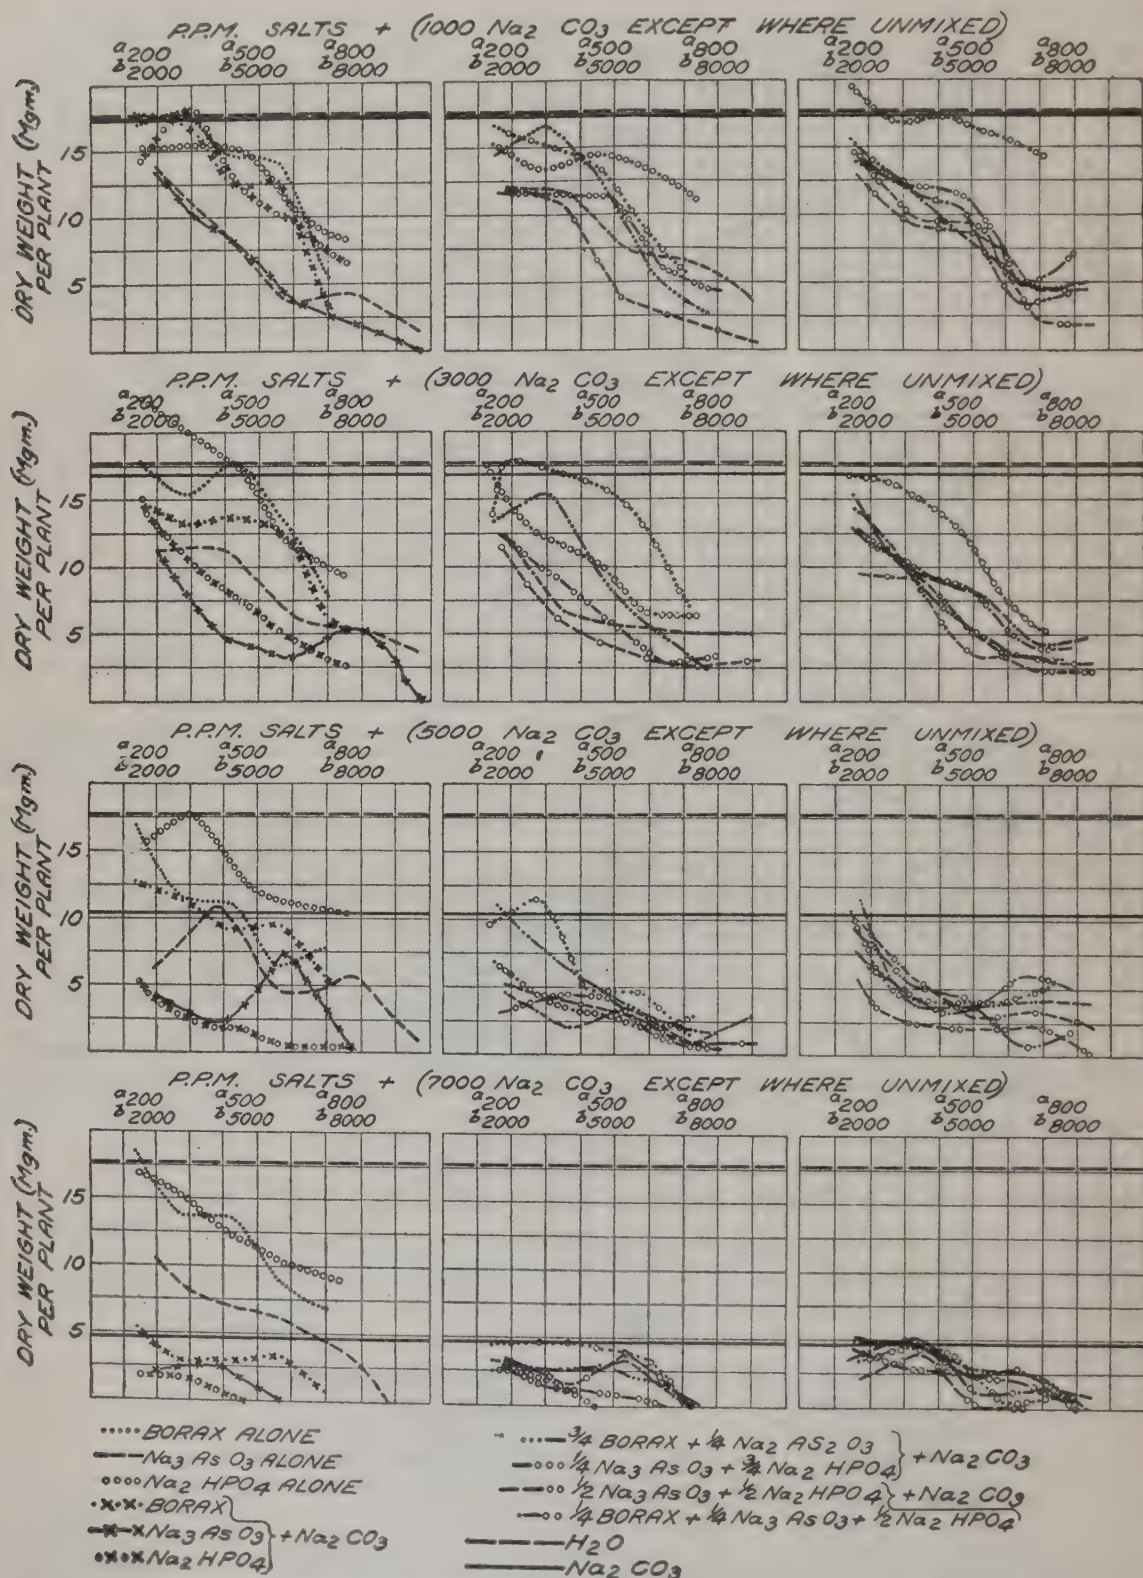 P.P.M. SALTS + (1000 Na2 CO3 EXCEPT WHERE UNMIXED)
a200 a500 a800 a200 a500 a800 a200 a500 a800
b2000 b5000 b8000 b2000 b5000 b8000 b2000 b5000 b8000
DRY WEIGHT (Mgm.)
PER PLANT
15
10
5
P.P.M. SALTS + (3000 Na2 CO3 EXCEPT WHERE UNMIXED)
a200 a500 a800 a200 a500 a800 a200 a500 a800
b2000 b5000 b8000 b2000 b5000 b8000 b2000 b5000 b8000
DRY WEIGHT (Mgm.)
PER PLANT
15
10
5
P.P.M. SALTS + (5000 Na2 CO3 EXCEPT WHERE UNMIXED)
a200 a500 a800 a200 a500 a800 a200 a500 a800
b2000 b5000 b8000 b2000 b5000 b8000 b2000 b5000 b8000
DRY WEIGHT (Mgm.)
PER PLANT
15
10
5
P.P.M. SALTS + (7000 Na2 CO3 EXCEPT WHERE UNMIXED)
a200 a500 a800 a200 a500 a800 a200 a500 a800
b2000 b5000 b8000 b2000 b5000 b8000 b2000 b5000 b8000
DRY WEIGHT (Mgm.)
PER PLANT
15
10
5
BORAX ALONE
Na3 As O3 ALONE
Na2 HPO4 ALONE
BORAX
Na3 As O3 + Na2 CO3
Na2 HPO4
3/4 BORAX + 1/4 Na2 AS2 O3
1/4 Na3 As O3 + 3/4 Na2 HPO4 + Na2 CO3
1/2 Na3 As O3 + 1/2 Na2 HPO4 + Na2 CO3
1/4 BORAX + 1/4 Na3 As O3 + 1/2 Na2 HPO4
H2O
Na2 CO3